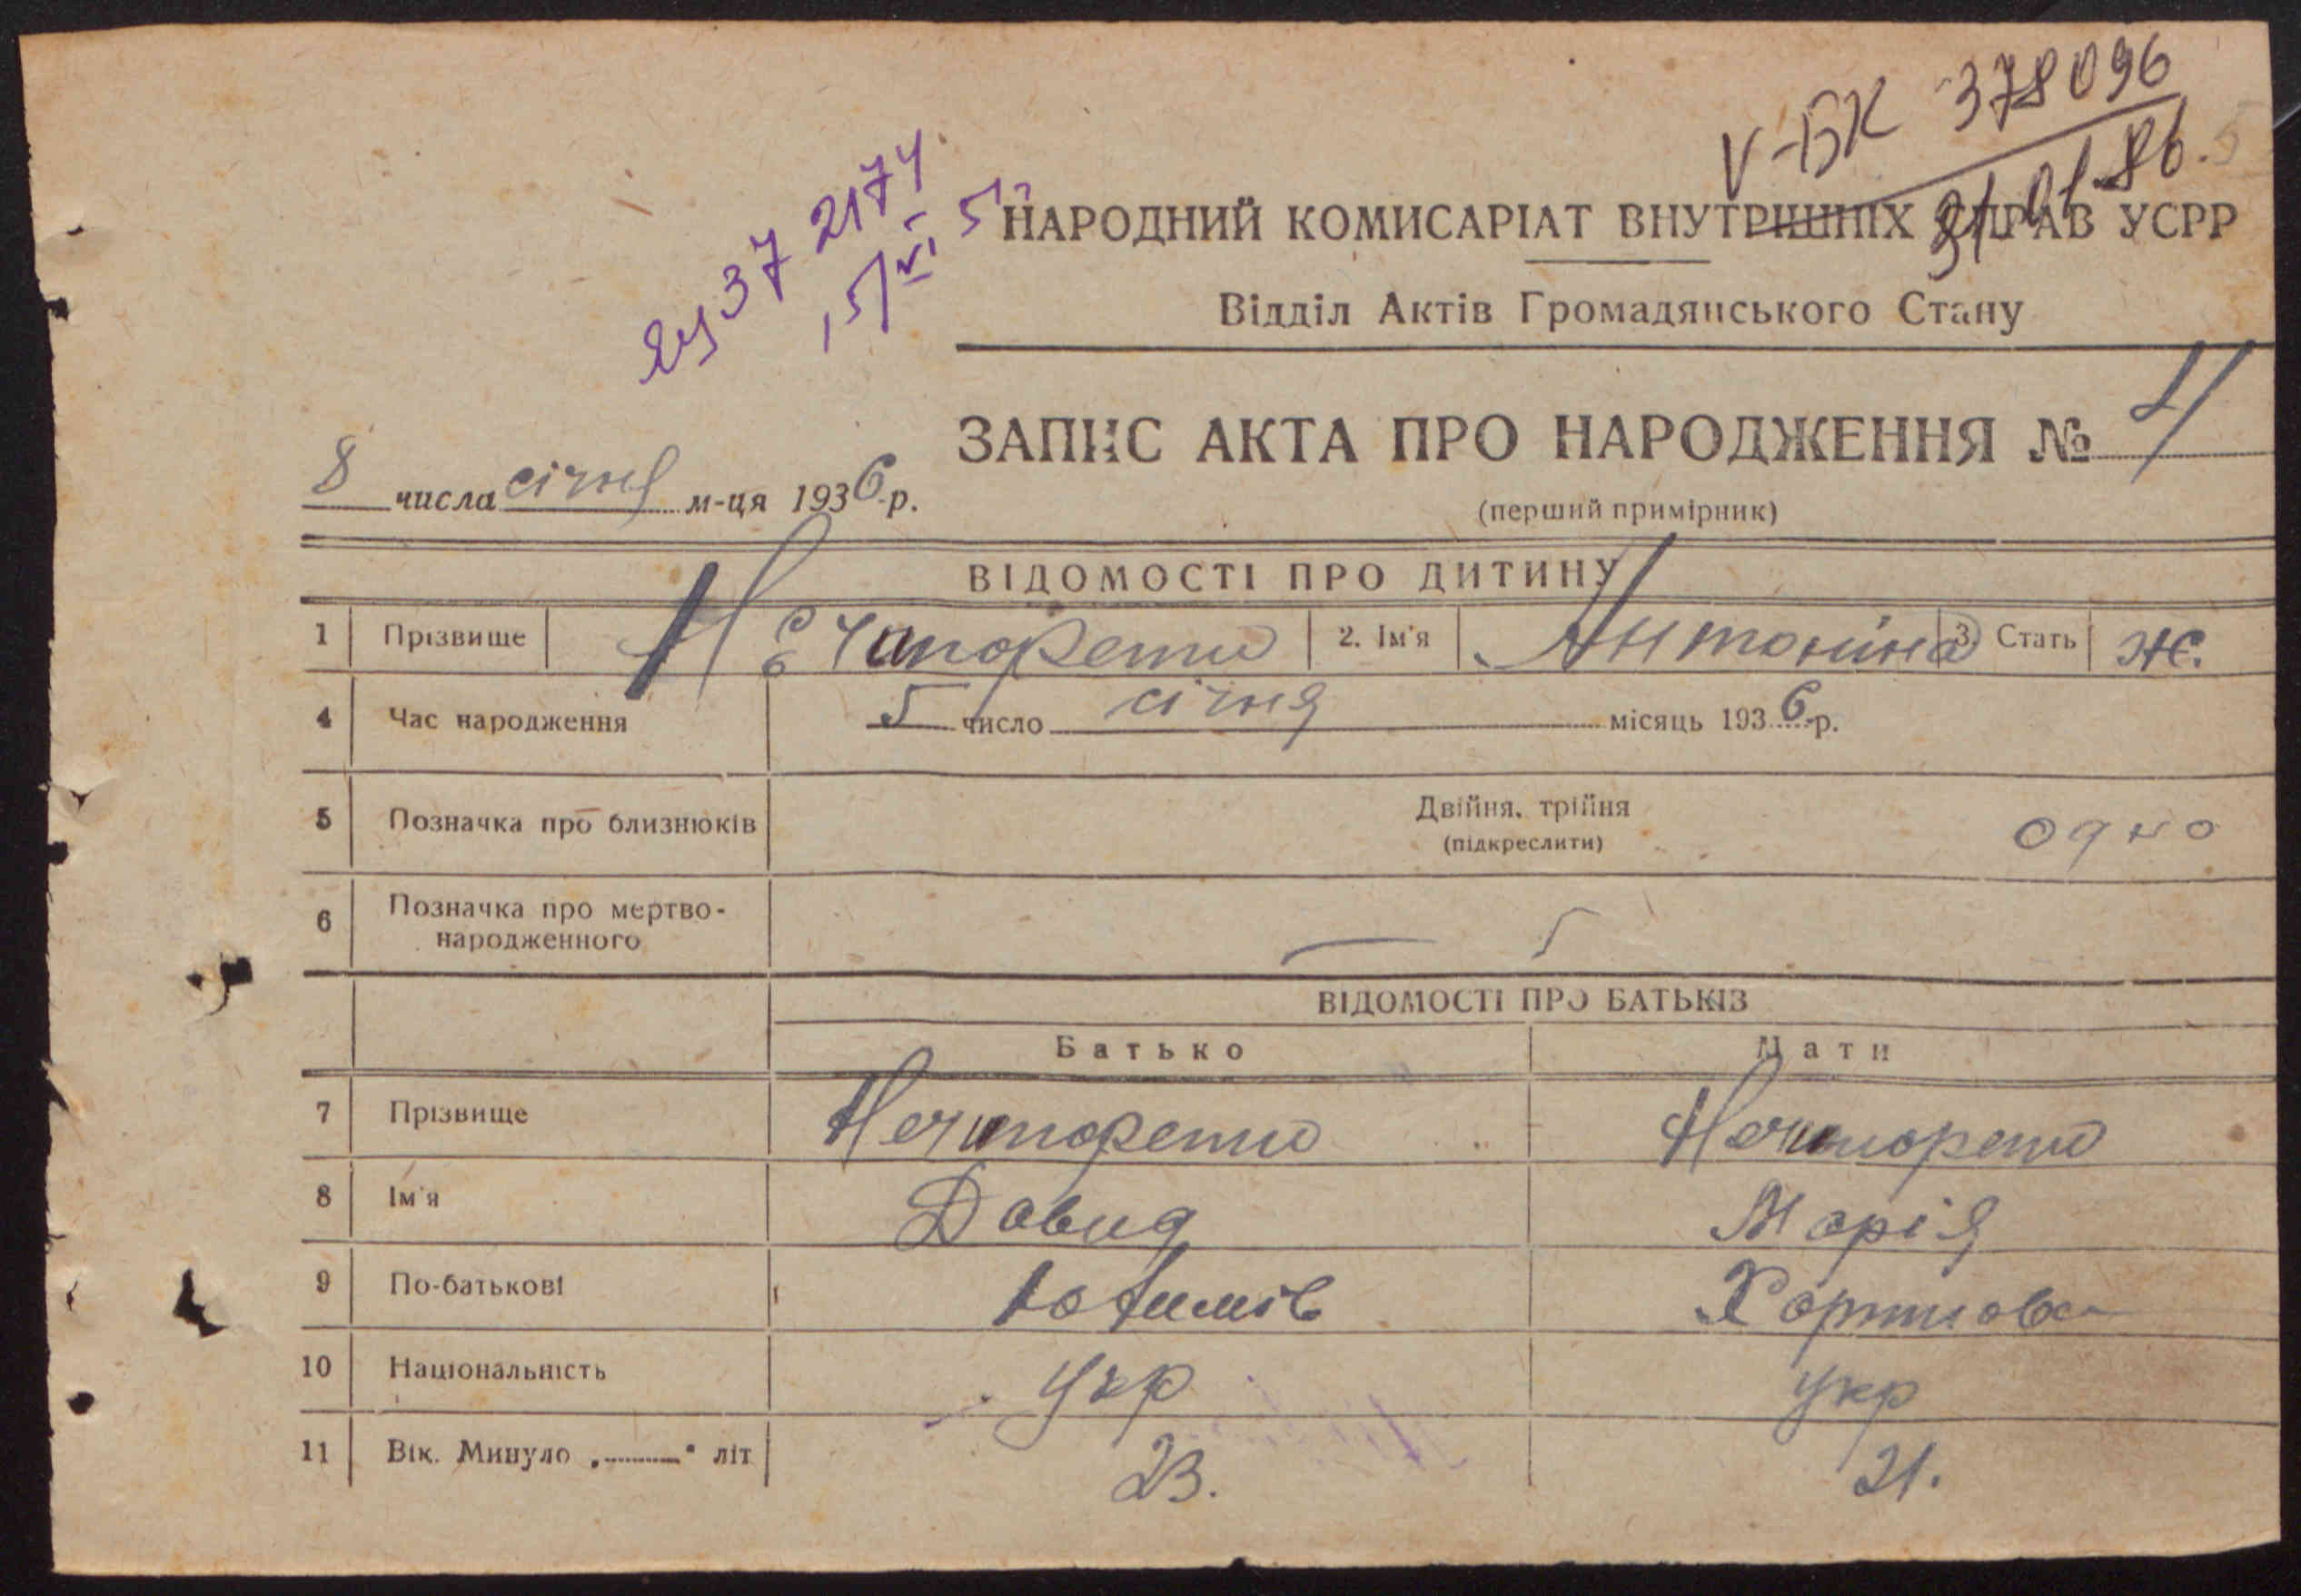 V-БК 378096
31.01.86.
37 2174
15/VI 5
НАРОДНИЙ КОМИСАРІАТ ВНУТРІШНІХ СПРАВ УСРР
Відділ Актів Громадянського Стану
ЗАПИС АКТА ПРО НАРОДЖЕННЯ №
8 числа січня м-ця 1936-р.
(перший примірник)
ВІДОМОСТІ ПРО ДИТИНУ
1 Прізвище Нечипоренко 2. Ім'я Антоніна 3. Стать ж.
4 Час народження 5 число січня місяць 1936-р.
5 Позначка про близнюків Двійня, трійня (підкреслити) одно
6 Позначка про мертво-
народженного —
ВІДОМОСТІ ПРО БАТЬКІВ
Батько Мати
7 Прізвище Нечипоренко Нечипоренко
8 Ім'я Давид Марія
9 По-батькові Юхимів
10 Національність укр укр
11 Вік. Минуло „ “ літ 23. 21.